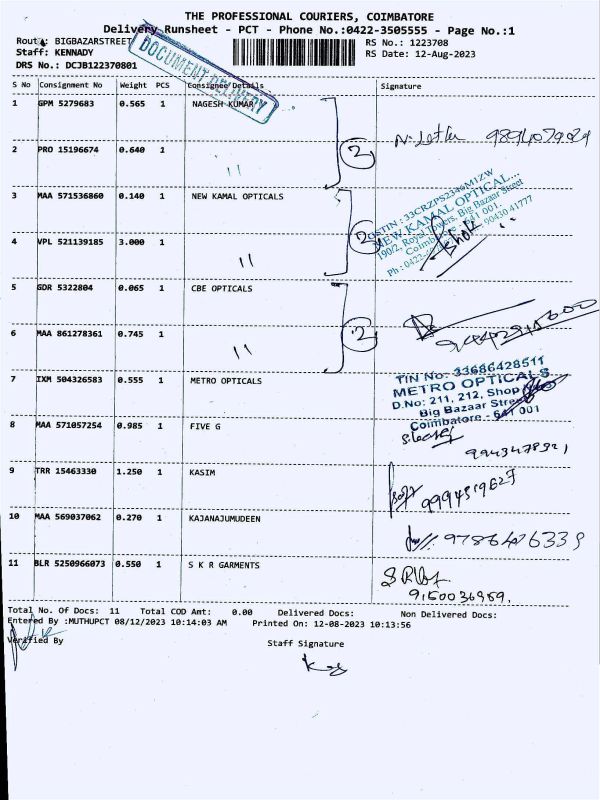 THE PROFESSIONAL COURIERS, COIMBATORE
Delivery Runsheet - PCT - Phone No.:0422-3505555 - Page No.:1
Route: BIGBAZARSTREET RS No.: 1223708
Staff: KENNADY RS Date: 12-Aug-2023
DRS No.: DCJB122370801
DOCUMENT DELIVERY
S No Consignment No Weight PCS Consignee Details Signature
1 GPM 5279683 0.565 1 NAGESH KUMAR
2 PRO 15196674 0.640 1 〃
2
3 MAA 571536860 0.140 1 NEW KAMAL OPTICALS
4 VPL 521139185 3.000 1 〃
2
GSTIN : 33CRZPS2346M1ZW
NEW KAMAL OPTICAL...
190/2, Royal Towers, Big Bazaar Street
Coimbatore - 641 001.
90430 41777
Ashok
5 GDR 5322804 0.065 1 CBE OPTICALS
6 MAA 861278361 0.745 1 〃
2
7 IXM 504326583 0.555 1 METRO OPTICALS
TIN No: 33686428511
METRO OPTICALS
D.No: 211, 212, Shop
Big Bazaar Street
Coimbatore - 641 001
8 MAA 571057254 0.985 1 FIVE G
9943478921
9 TRR 15463330 1.250 1 KASIM
9994519627
10 MAA 569037062 0.270 1 KAJANAJUMUDEEN
9786426339
11 BLR 5250966073 0.550 1 S K R GARMENTS
9150036989.
Total No. Of Docs: 11 Total COD Amt: 0.00 Delivered Docs: Non Delivered Docs:
Entered By :MUTHUPCT 08/12/2023 10:14:03 AM Printed On: 12-08-2023 10:13:56
Verified By Staff Signature